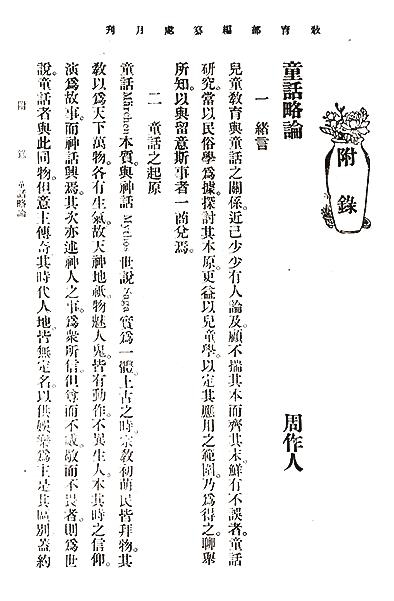 教育部編纂處月刊
附錄
童話略論　周作人
一　緒言
兒童教育與童話之關係。近已少少有人論及。顧不揣其本而齊其末。鮮有不誤者。童話
研究當以民俗學爲據。探討其本原。更益以兒童學。以定其應用之範圍。乃爲得之。聊舉
所知。以與留意斯事者一商兌焉。
二　童話之起原
童話 Märchen 本質與神話 Mythos 世說 Saga 實爲一體。上古之時。宗教初萌。民皆拜物。其
教以爲天下萬物。各有生氣。故天神地祇。物魅人鬼。皆有動作。不異生人。本其時之信仰。
演爲故事。而神話興焉。其次亦述神人之事。爲衆所信。但尊而不威。敬而不畏者。則爲世
說。童話者。與此同物。但意主傳奇。其時代人地皆無定名。以供娛樂爲主。是其區別。蓋約
附錄　童話略論